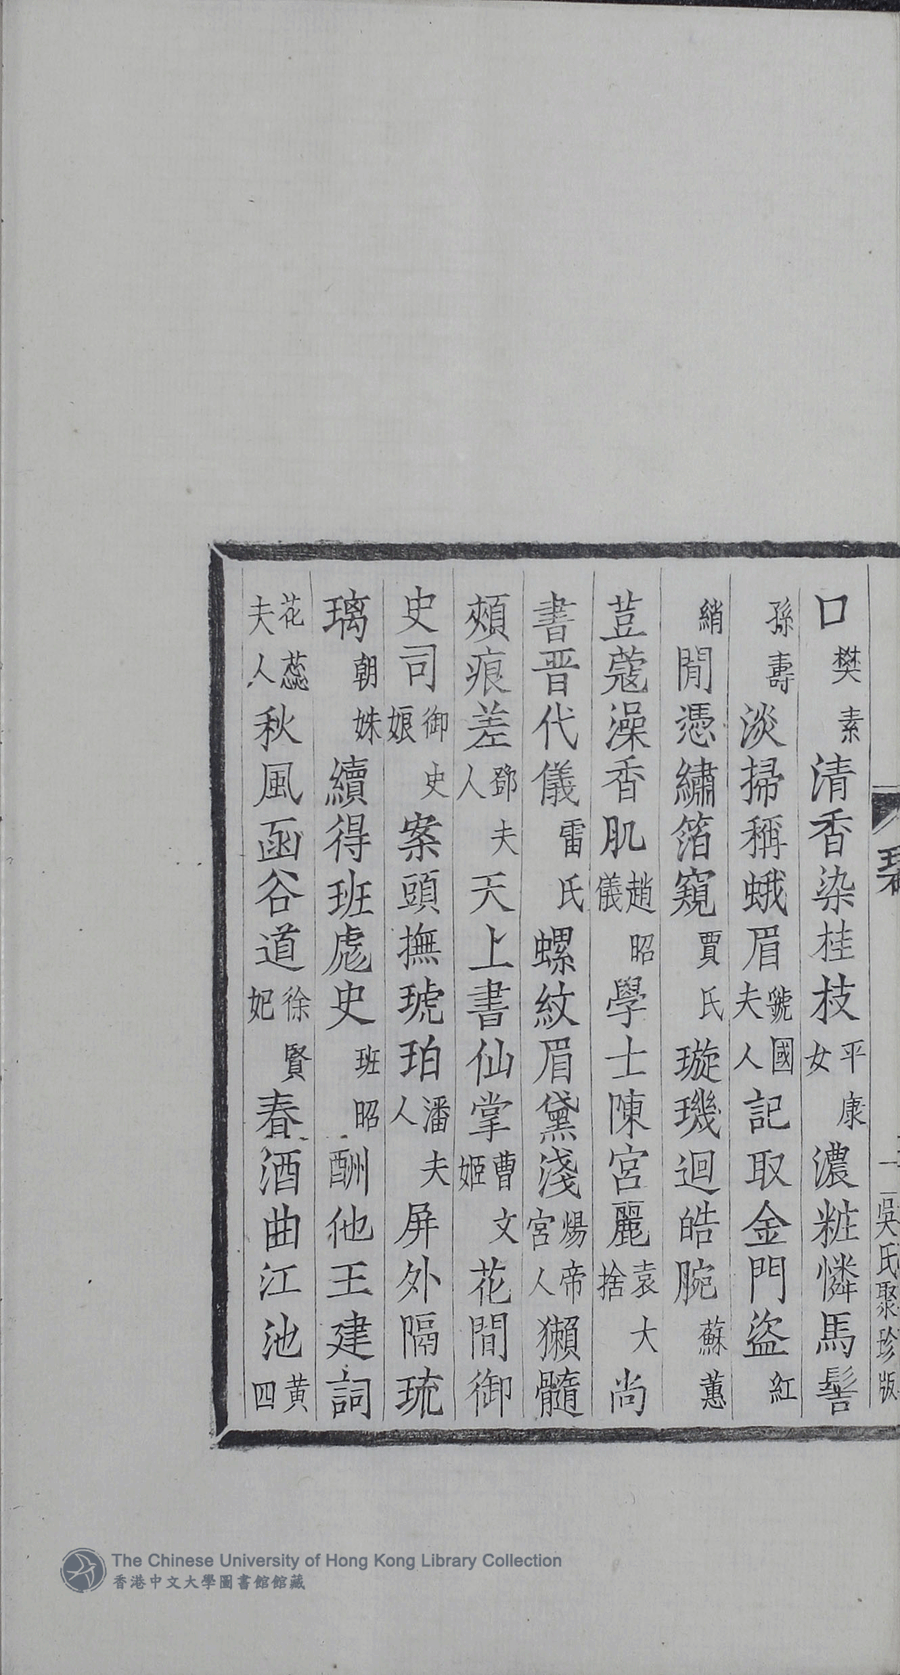 口樊素清香染桂枝平康女濃粧憐馬髻
孫壽淡掃稱蛾眉虢國夫人記取金門盜紅
綃閒憑繡箔窺賈氏璇璣迴皓腕蘇蕙
荳蔻澡香肌趙昭儀學士陳宮麗袁大捨尚
書晋代儀雷氏螺紋眉黛淺煬帝宮人獺髓
頰痕差鄧夫人天上書仙掌曹文姬花間御
史司御史娘案頭撫琥珀潘夫人屏外隔琉
璃朝姝續得班彪史班昭酬他王建詞
花蕊夫人秋風函谷道徐賢妃春酒曲江池黄四
一吳氏聚珍版
The Chinese University of Hong Kong Library Collection
香港中文大學圖書館館藏